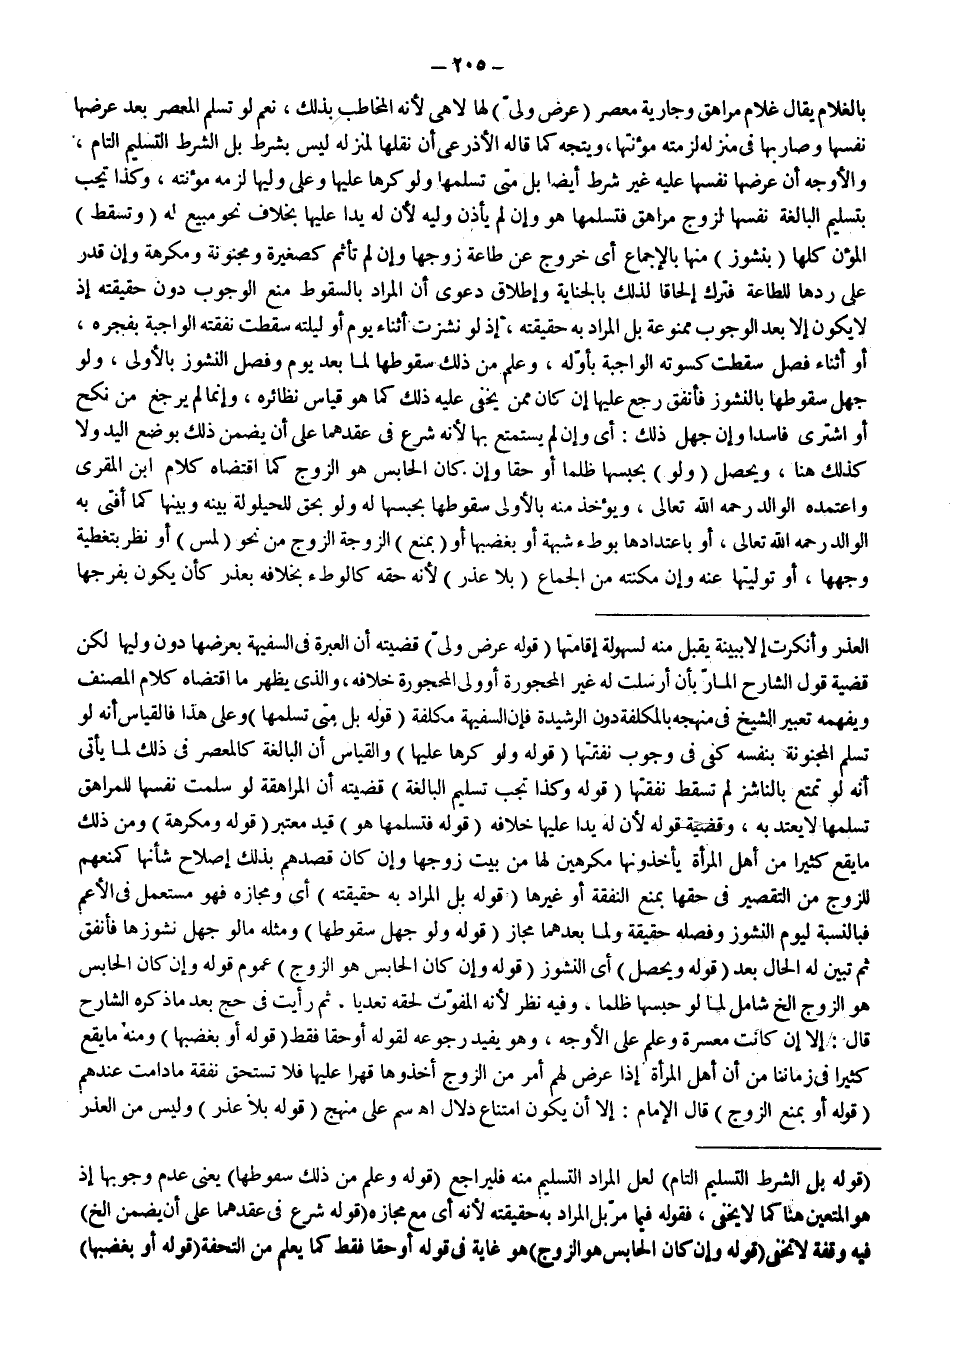 – ٢٠٥ –
بالغلام يقال غلام مراهق وجارية معصر ( عرض ولىّ ) لها لاهى لأنه المخاطب بذلك ، نعم لو تسلم المعصر بعد عرضها
نفسها وصار بها فى منزله لزمته مؤنتها، ويتجه كما قاله الأذرعى أن نقلها لمنزله ليس بشرط بل الشرط التسليم التام ،
والأوجه أن عرضها نفسها عليه غير شرط أيضا بل متى تسلمها ولو كرها عليها وعلى وليها لزمه مؤنته ، وكذا تجب
بتسليم البالغة نفسها لزوج مراهق فتسلمها هو وإن لم يأذن وليه لأن له يدا عليها بخلاف نحو مبيع له ( وتسقط )
المؤن كلها ( بنشوز ) منها بالإجماع أى خروج عن طاعة زوجها وإن لم تأثم كصغيرة ومجنونة ومكرهة وإن قدر
على ردها للطاعة فترك إلحاقا لذلك بالجناية وإطلاق دعوى أن المراد بالسقوط منع الوجوب دون حقيقته إذ
لايكون إلا بعد الوجوب ممنوعة بل المراد به حقيقته ، إذ لو نشزت أثناء يوم أو ليلته سقطت نفقته الواجبة بفجره ،
أو أثناء فصل سقطت كسوته الواجبة بأوّله ، وعلم من ذلك سقوطها لما بعد يوم وفصل النشوز بالأولى ، ولو
جهل سقوطها بالنشوز فأنفق رجع عليها إن كان ممن يخفى عليه ذلك كما هو قياس نظائره ، وإنما لم يرجع من نكح
أو اشترى فاسدا وإن جهل ذلك : أى وإن لم يستمتع بها لأنه شرع فى عقدهما على أن يضمن ذلك بوضع اليد ولا
كذلك هنا ، ويحصل ( ولو ) بحبسها ظلما أو حقا وإن كان الحابس هو الزوج كما اقتضاه كلام ابن المقرى
واعتمده الوالد رحمه الله تعالى ، ويؤخذ منه بالأولى سقوطها بحبسها له ولو بحق للحيلولة بينه وبينها كما أفتى به
الوالد رحمه الله تعالى ، أو باعتدادها بوطء شبهة أو بغصبها أو ( بمنع ) الزوجة الزوج من نحو ( لمس ) أو نظر بتغطية
وجهها ، أو توليتها عنه وإن مكنته من الجماع ( بلا عذر ) لأنه حقه كالوطء بخلافه بعذر كأن يكون بفرجها
العذر وأنكرت إلا ببينة يقبل منه لسهولة إقامتها ( قوله عرض ولىّ ) قضيته أن العبرة فى السفيهة بعرضها دون وليها لكن
قضية قول الشارح المارّ بأن أرسلت له غير المحجورة أو ولى المحجورة خلافه، والذى يظهر ما اقتضاه كلام المصنف
ويفهمه تعبير الشيخ فى منهجه بالمكلفة دون الرشيدة فإن السفيهة مكلفة ( قوله بل متى تسلمها ) وعلى هذا فالقياس أنه لو
تسلم المجنونة بنفسه كفى فى وجوب نفقتها ( قوله ولو كرها عليها ) والقياس أن البالغة كالمعصر فى ذلك لما يأتى
أنه لو تمتع بالناشز لم تسقط نفقتها ( قوله وكذا تجب تسليم البالغة ) قضيته أن المراهقة لو سلمت نفسها للمراهق
تسلمها لايعتد به ، وقضية قوله لأن له يدا عليها خلافه ( قوله فتسلمها هو ) قيد معتبر ( قوله ومكرهة ) ومن ذلك
مايقع كثيرا من أهل المرأة يأخذونها مكرهين لها من بيت زوجها وإن كان قصدهم بذلك إصلاح شأنها كمنعهم
للزوج من التقصير فى حقها بمنع النفقة أو غيرها ( قوله بل المراد به حقيقته ) أى ومجازه فهو مستعمل فى الأعم
فبالنسبة ليوم النشوز وفصله حقيقة ولما بعدهما مجاز ( قوله ولو جهل سقوطها ) ومثله مالو جهل نشوزها فأنفق
ثم تبين له الحال بعد ( قوله ويحصل ) أى النشوز ( قوله وإن كان الحابس هو الزوج ) عموم قوله وإن كان الحابس
هو الزوج الخ شامل لما لو حبسها ظلما . وفيه نظر لأنه المفوّت لحقه تعديا . ثم رأيت فى حج بعد ماذكره الشارح
قال : إلا إن كانت معسرة وعلم على الأوجه ، وهو يفيد رجوعه لقوله أو حقا فقط ( قوله أو بغصبها ) ومنه مايقع
كثيرا فى زماننا من أن أهل المرأة إذا عرض لهم أمر من الزوج أخذوها قهرا عليها فلا تستحق نفقة مادامت عندهم
( قوله أو بمنع الزوج ) قال الإمام : إلا أن يكون امتناع دلال اه سم على منهج ( قوله بلا عذر ) وليس من العذر
(قوله بل الشرط التسليم التام) لعل المراد التسليم منه فليراجع (قوله وعلم من ذلك سقوطها) يعنى عدم وجوبها إذ
هو المتعين هنا كما لايخفى ، فقوله فيما مرّ بل المراد به حقيقته لأنه أى مع مجازه (قوله شرع فى عقدهما على أن يضمن الخ)
فيه وقفة لاتخفى (قوله وإن كان الحابس هو الزوج) هو غاية فى قوله أو حقا فقط كما يعلم من التحفة (قوله أو بغصبها)